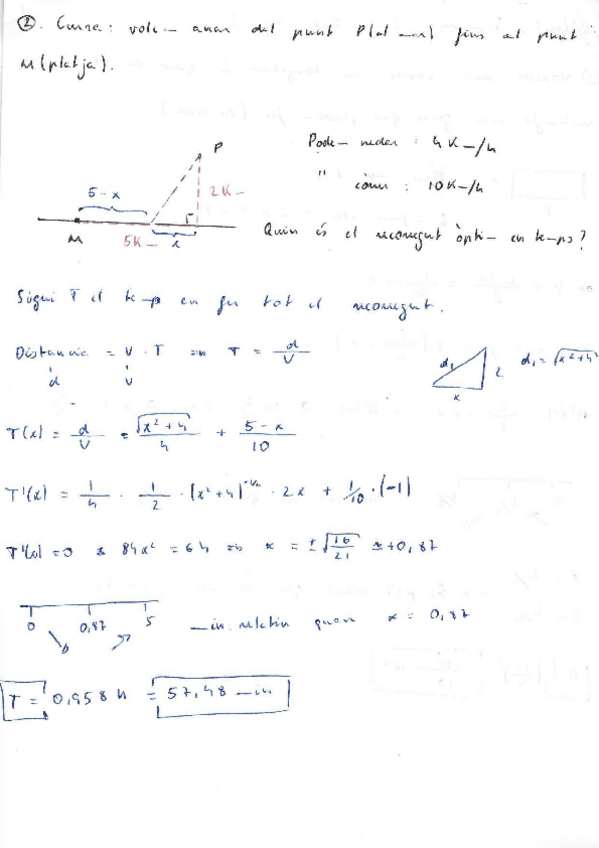 ②. Cursa: volem anar del punt P (al mar) fins al punt
M (platja).
P
Podem nedar : 4 Km/h
5-x
2 Km
" córrer : 10 Km/h
M
5 Km
x
Quin és el recorregut òptim en temps?
Sigui T el temps en fer tot el recorregut.
Distancia = V · T => T = d/V
d V
d₁ 2 x d₁ = √(x²+4)
T(x) = d/V = √(x²+4)/4 + (5-x)/10
T'(x) = 1/4 · 1/2 · (x²+4)^(-1/2) · 2x + 1/10 · (-1)
T'(x) = 0 84x² = 64 => x = ±√(16/21) ≈ +0,87
0 0,87 5
min. relatiu quan x = 0,87
T = 0,958 h = 57,48 min